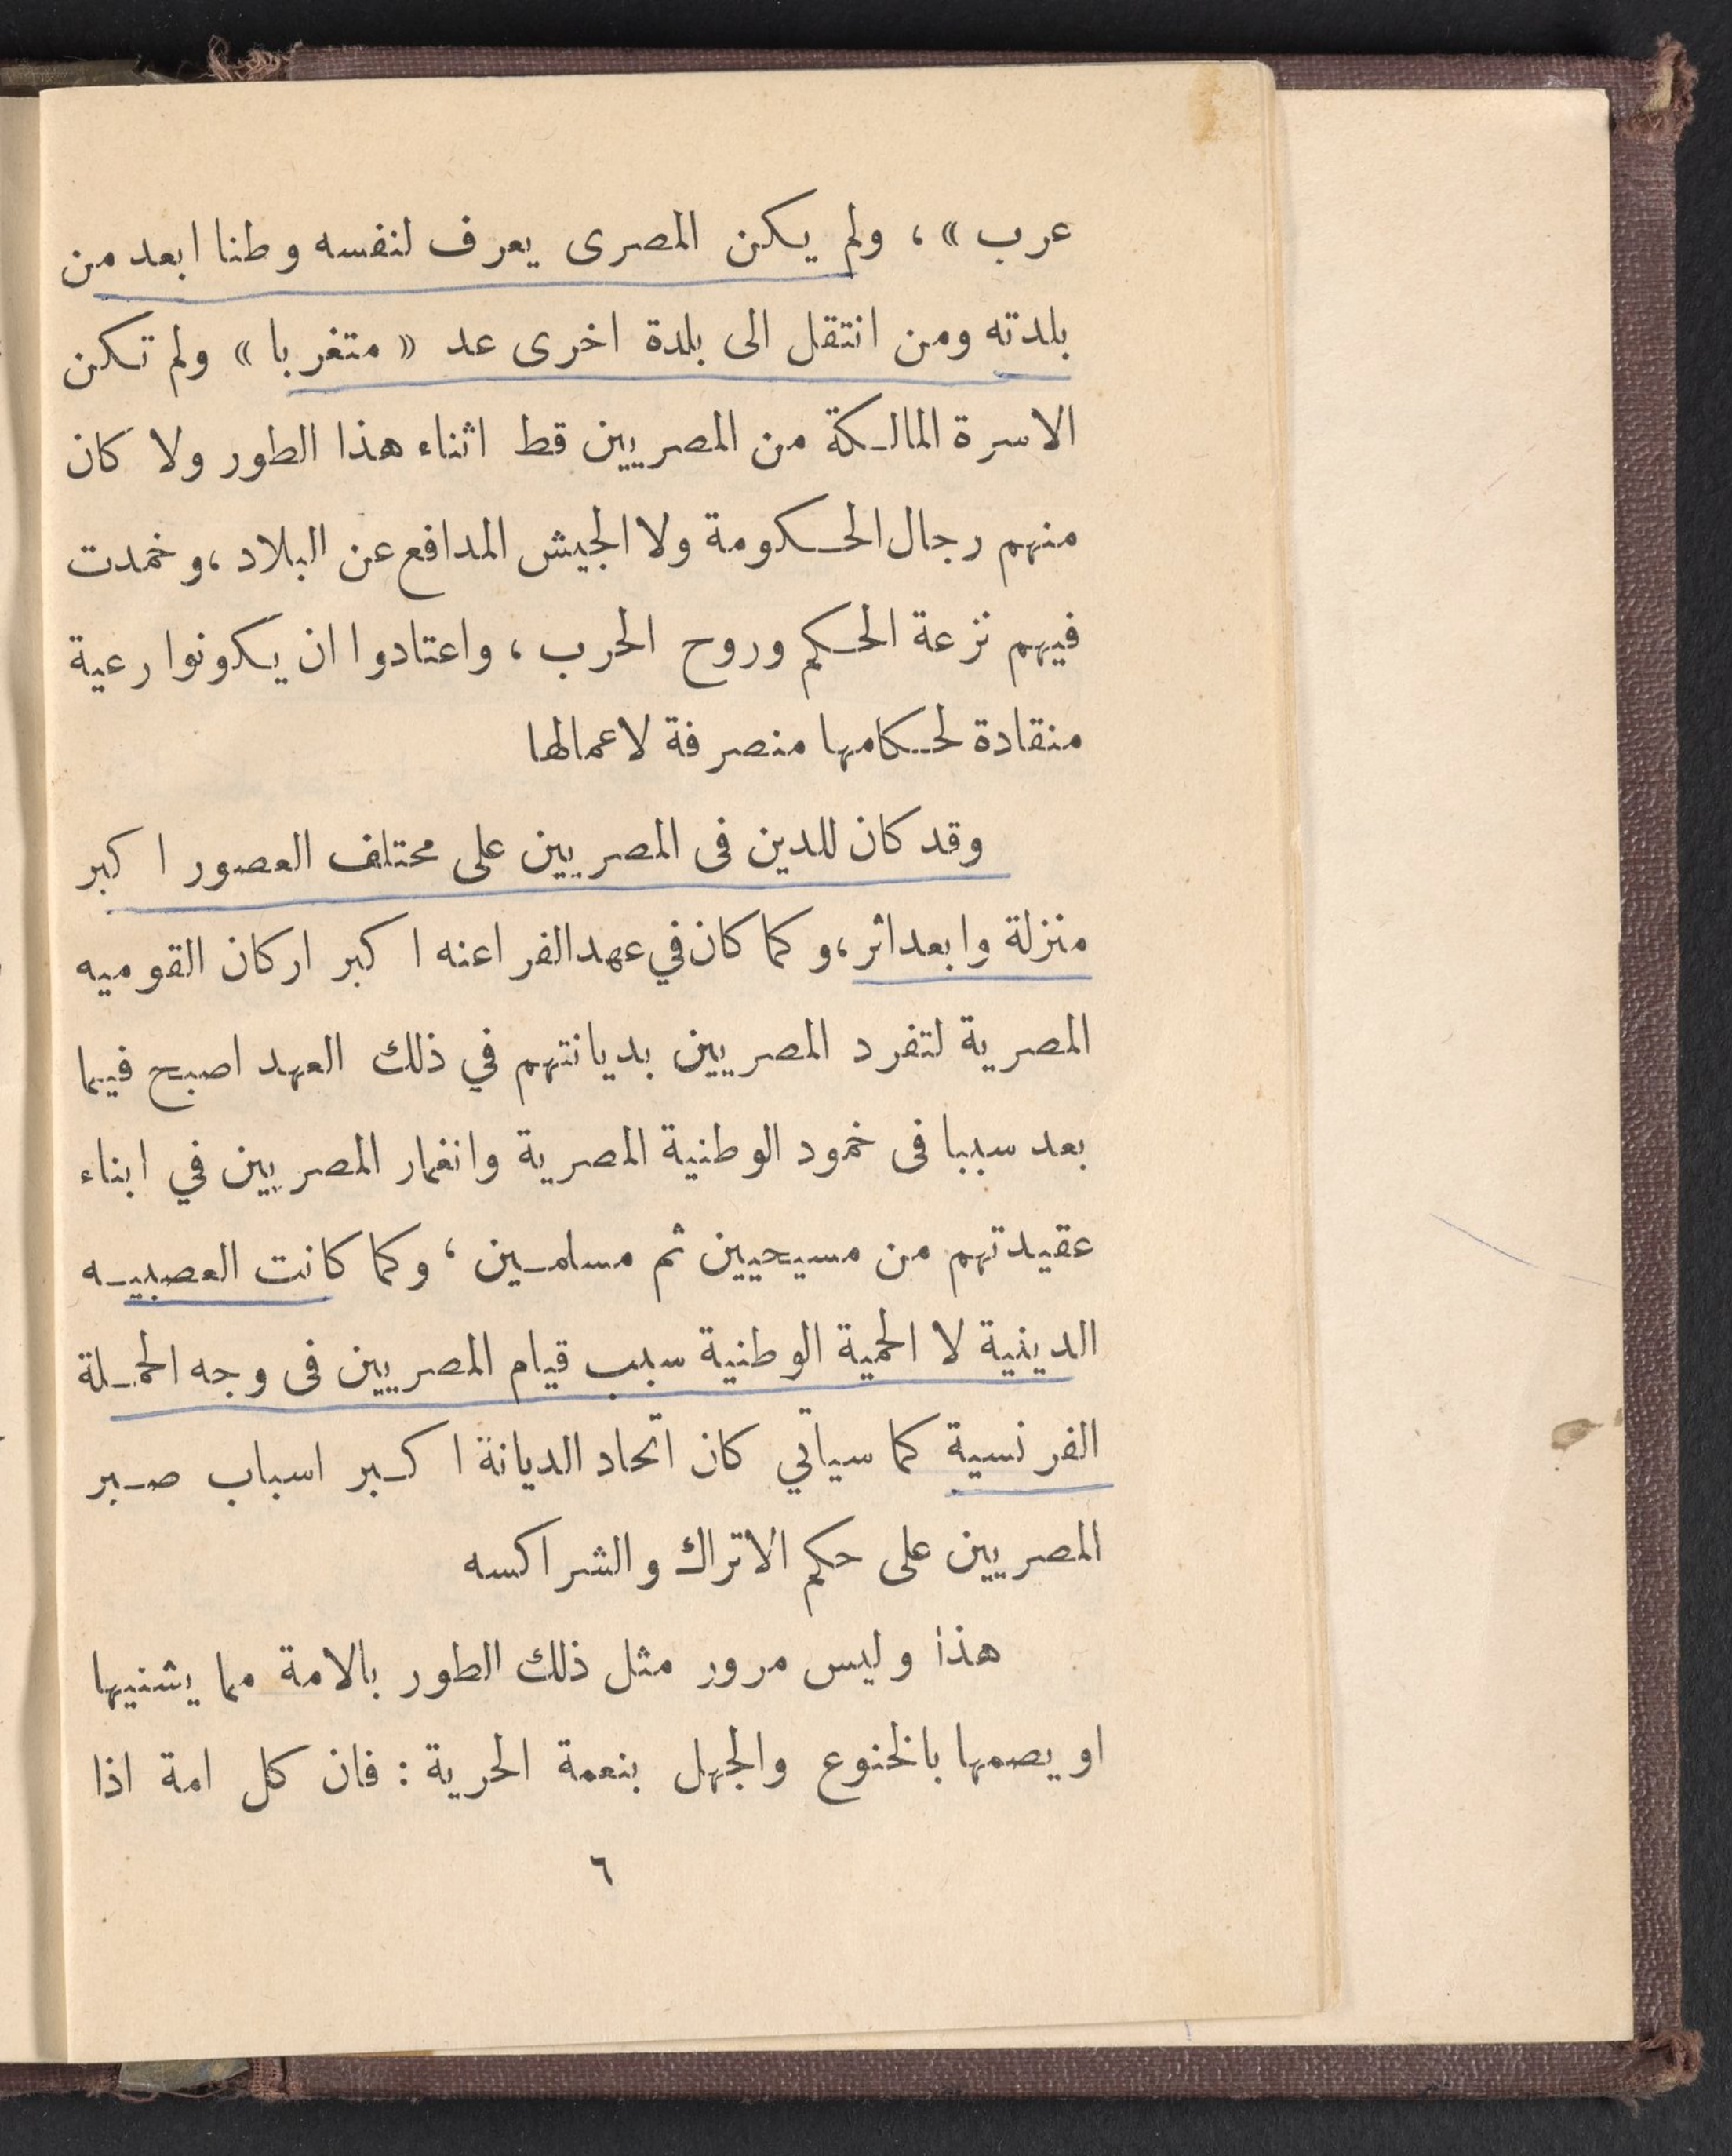 عرب » ، ولم يكن المصرى يعرف لنفسه وطنا ابعد من
بلدته ومن انتقل الى بلدة اخرى عد « متغربا » ولم تكن
الاسرة المالكة من المصريين قط اثناء هذا الطور ولا كان
منهم رجال الحكومة ولا الجيش المدافع عن البلاد ، وخمدت
فيهم نزعة الحكم وروح الحرب ، واعتادوا ان يكونوا رعية
منقادة لحكامها منصرفة لاعمالها
وقد كان للدين فى المصريين على مختلف العصور اكبر
منزلة وابعد اثر ، وكما كان في عهد الفراعنه اكبر اركان القوميه
المصرية لتفرد المصريين بديانتهم في ذلك العهد اصبح فيما
بعد سببا فى خمود الوطنية المصرية وانغمار المصريين في ابناء
عقيدتهم من مسيحيين ثم مسلمين ، وكما كانت العصبيه
الدينية لا الحمية الوطنية سبب قيام المصريين فى وجه الحملة
الفرنسية كما سيأتي كان اتحاد الديانة اكبر اسباب صبر
المصريين على حكم الاتراك والشراكسه
هذا وليس مرور مثل ذلك الطور بالامة مما يشنيها
او يصمها بالخنوع والجهل بنعمة الحرية : فان كل امة اذا
٦